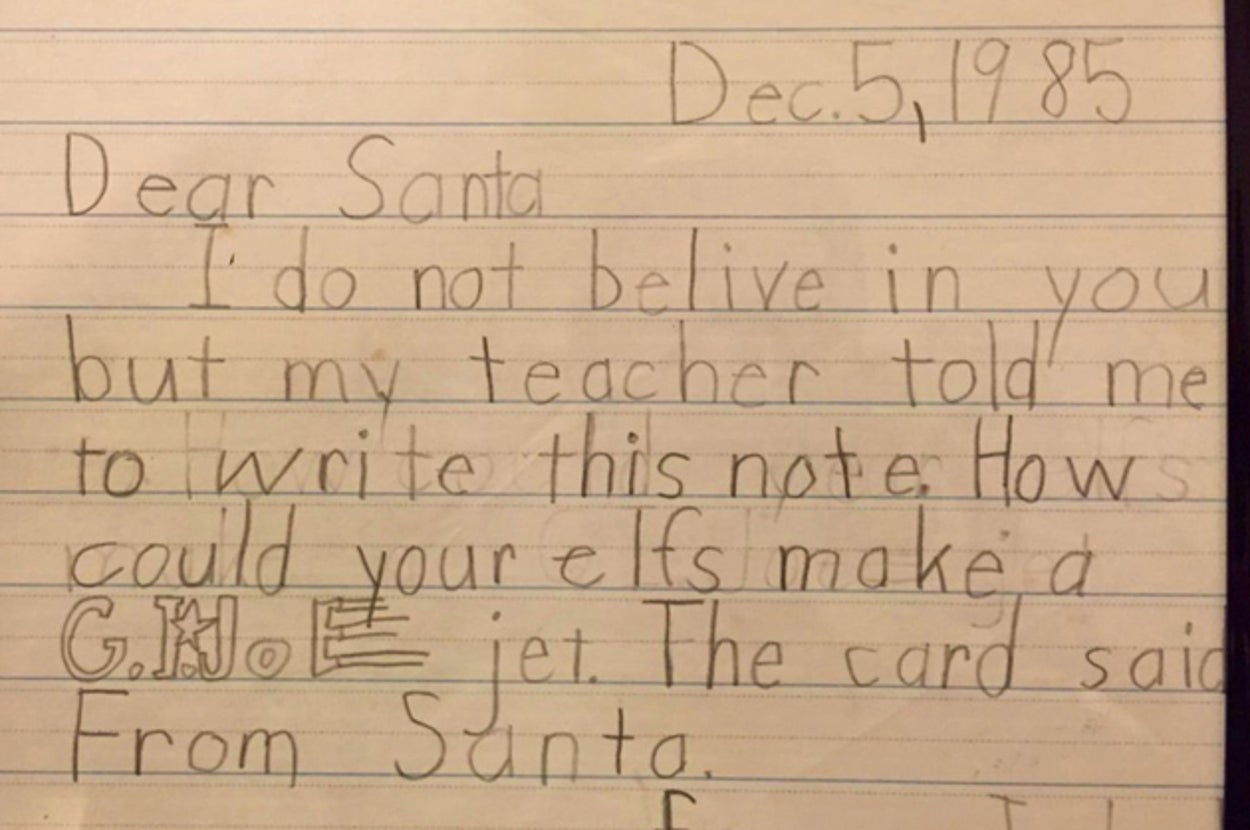 Dec. 5, 1985
Dear Santa
I do not belive in you
but my teacher told me
to write this note. How
could your elfs make a
G.I. Joe jet. The card said
From Santa.